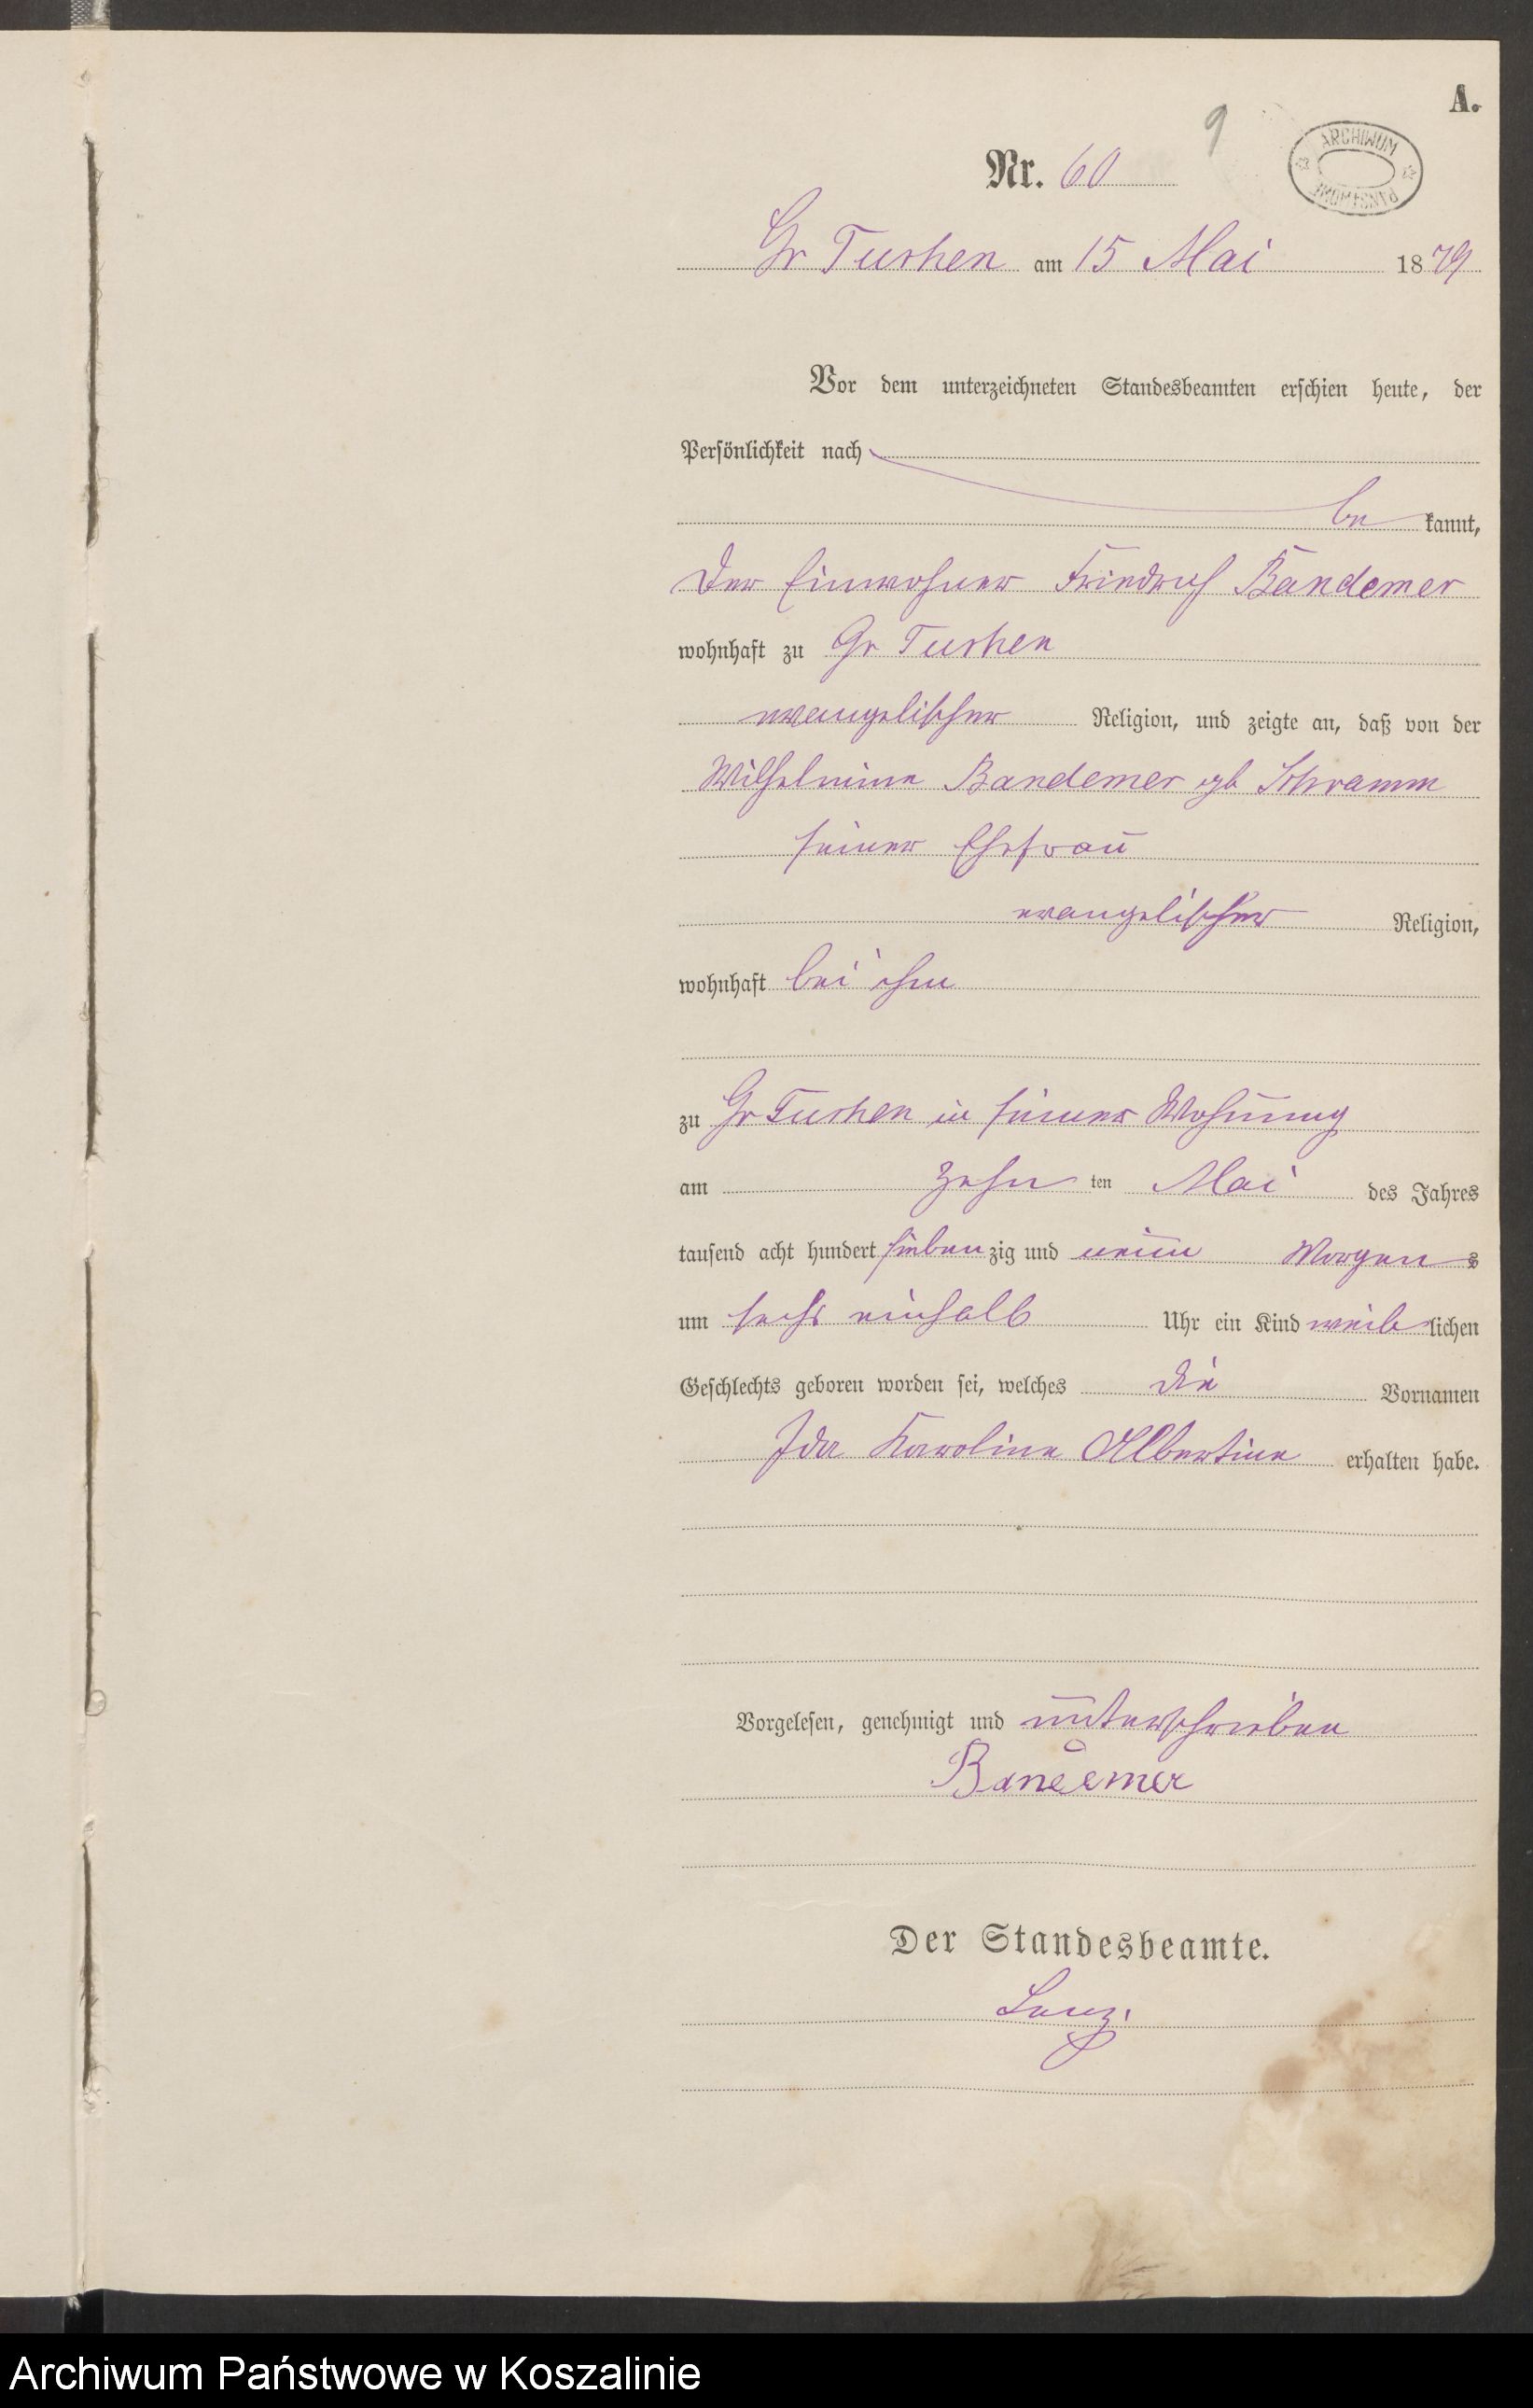 A.
9
ARCHIWUM PAŃSTWOWE
Nr. 60
Gr Tushen am 15 Mai 1879
Vor dem unterzeichneten Standesbeamten erschien heute, der
Persönlichkeit nach
be kannt,
der Einwohner Friedrich Bandemer
wohnhaft zu Gr Tushen
evangelischer Religion, und zeigte an, daß von der
Wilhelmine Bandemer gb Schramm
seiner Ehefrau
evangelischer Religion,
wohnhaft bei ihm
zu Gr Tushen in seiner Wohnung
am zehn ten Mai des Jahres
tausend acht hundert siebenzig und neun Morgens
um sechs einhalb Uhr ein Kind weiblichen
Geschlechts geboren worden sei, welches die Vornamen
Ida Karoline Albertine erhalten habe.
Vorgelesen, genehmigt und unterschrieben
Bandemer
Der Standesbeamte.
Archiwum Państwowe w Koszalinie